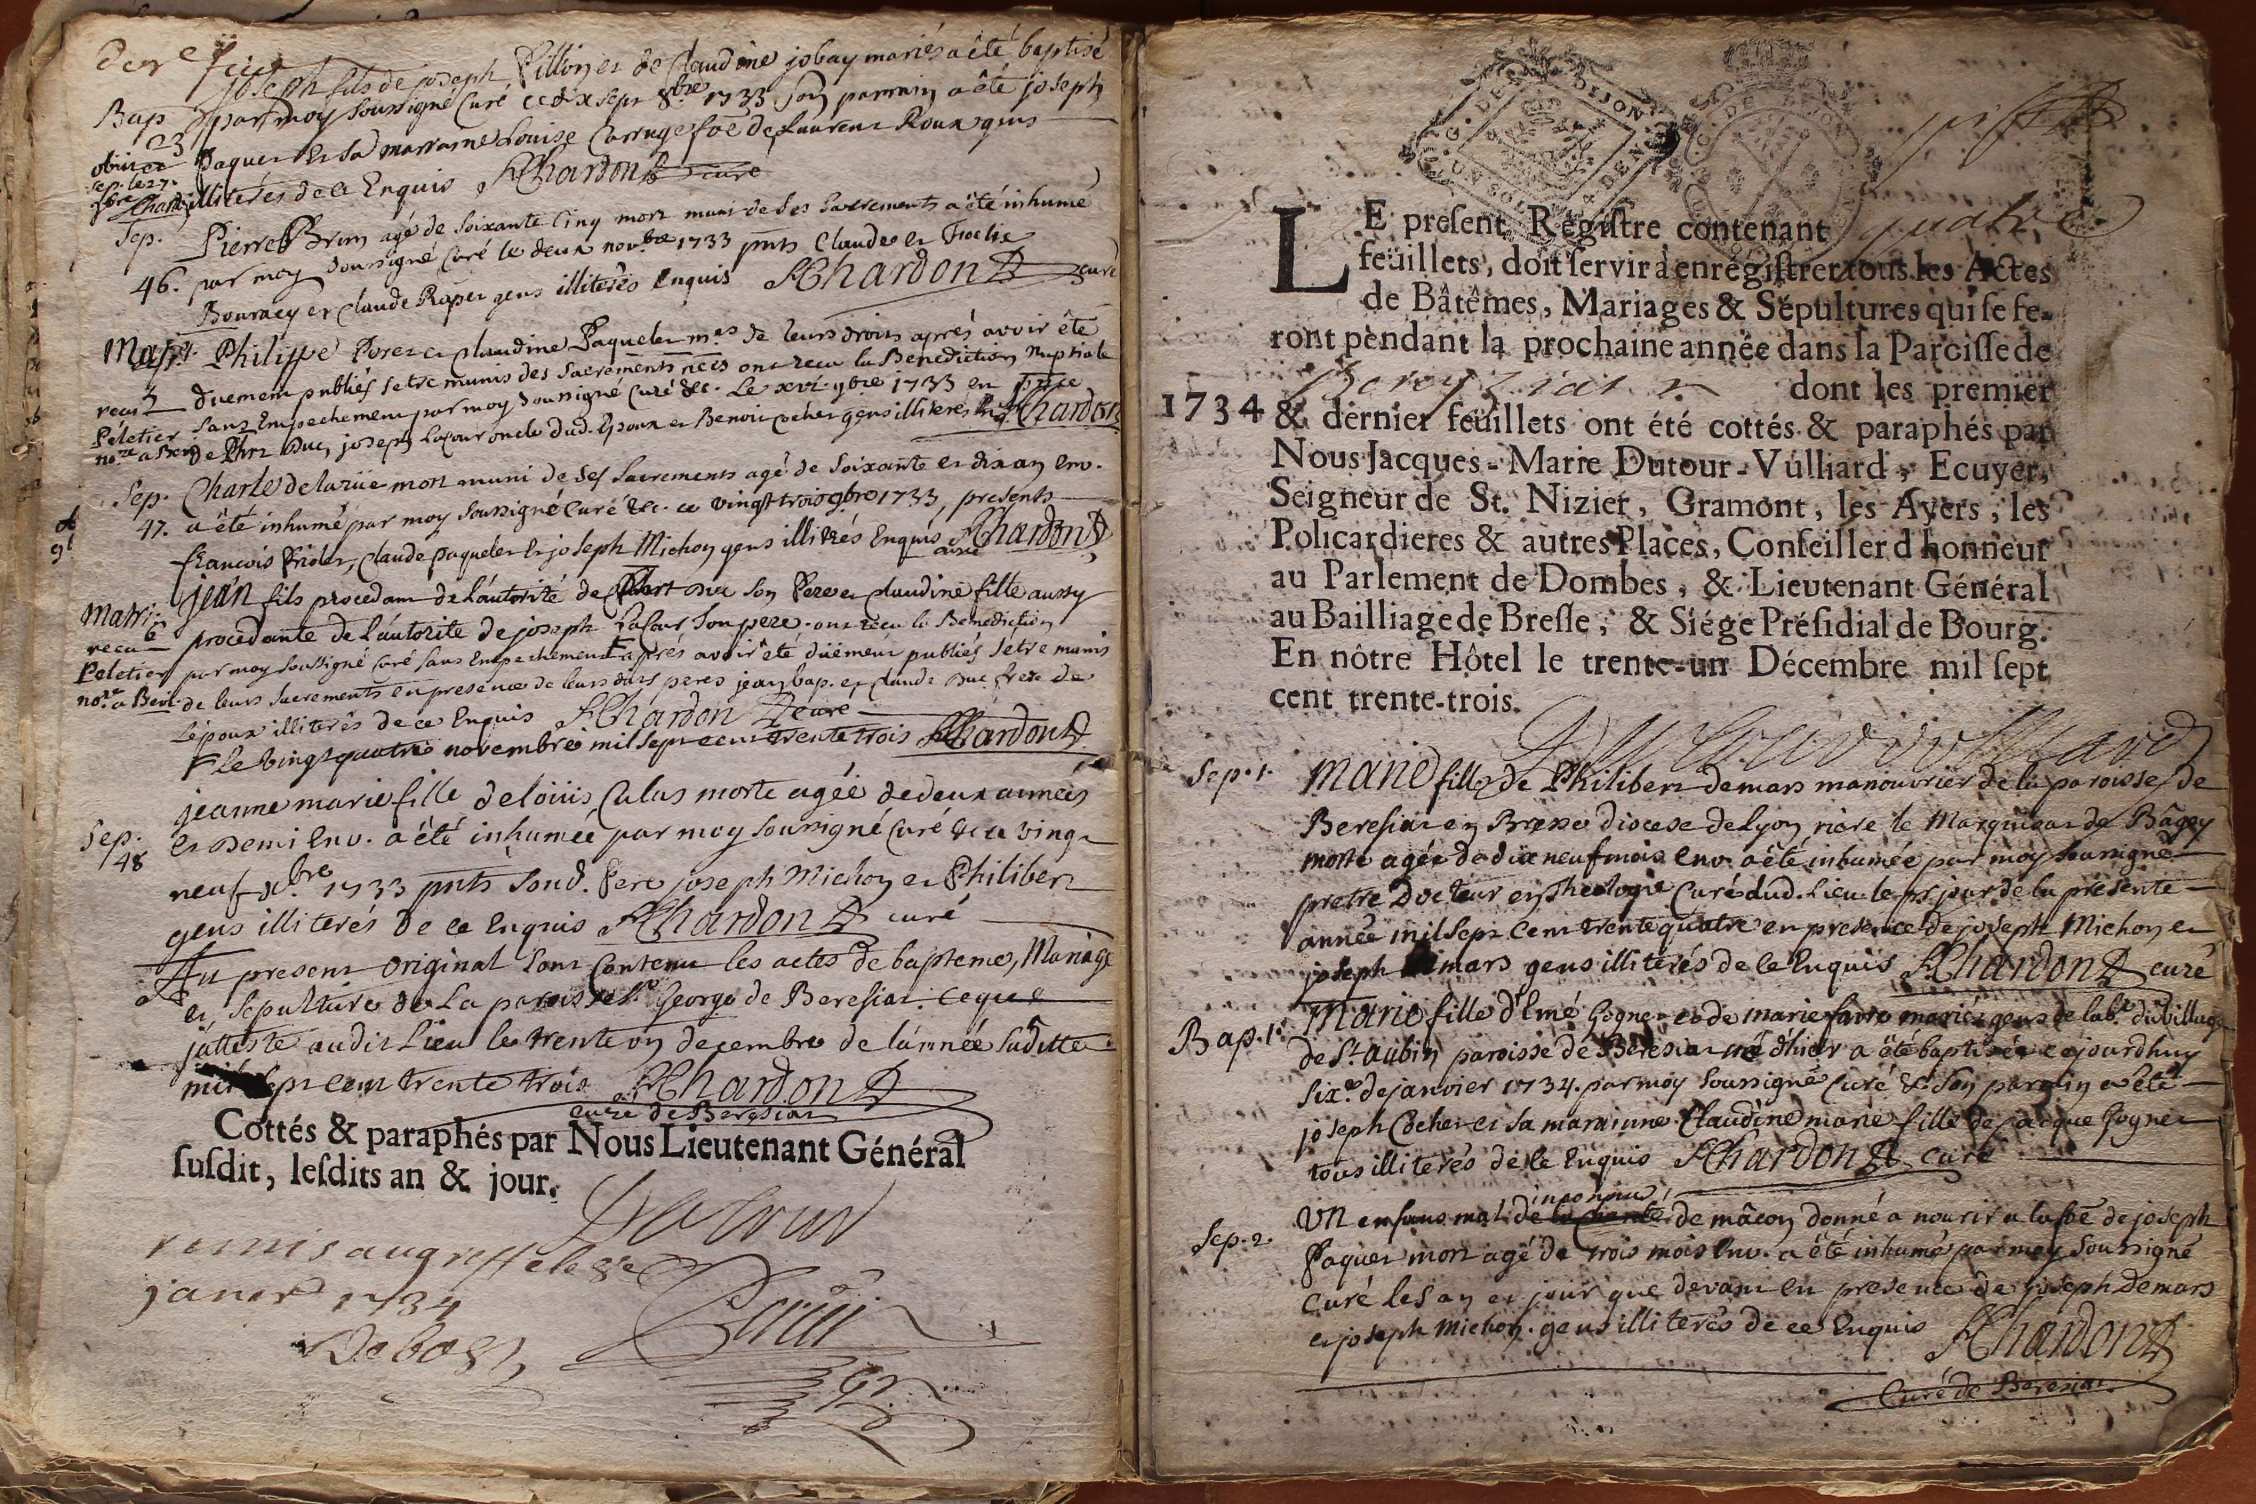 joseph fils de joseph Pillion et de Claudine jobay mariés a été baptisé
Bap
par moy soussigné Curé ce dix sept 8bre 1733 son parrain a été joseph
23
Paquet et sa marraine Louise Carruge fõe de Laurent Roux gens
obiit et
sep. le 27.
illiterés de ce Enquis AChardon curé
Sep.
Pierre Brun agé de soixante Cinq mort muni de ses sacrements a été inhumé
46. par moy soussigné Curé le deux novbre 1733 pnts Claude et
Bouracy et Claude Roper gens illiterés Enquis AChardon curé
Mari.
Philippe Poret et claudine Paquelet mes de leurs droits aprés avoir été
3
duement publiés setre munis des sacrements ont recu la Benediction Nuptiale
recu
Peletier
sans Empechement par moy soussigné Curé &c. Le xvi 9bre 1733 en
nore a
de Phrt Duc, joseph Lacour oncle dud. Epoux et Benoit Cocher gens illiterés AChardon
Sep. Charle delarüe mort muni de ses sacrements agé de soixante et dix an env.
47. a été inhumé par moy soussigné Curé &c. ce vingt trois 9bre 1733, presents
francois Friolet, Claude paquelet et joseph Michon gens illiterés Enquis AChardon
curé
jean fils procedant de l'autorité de Phrt Duc son Pere et claudine fille aussy
Mari.
6
procedante de l'autorite de joseph Lacour son pere ont recu la Benediction
recu
Peletier
par moy soussigné curé sans Empechement aprés avoir été düement publiés setre munis
nore a
de leurs sacrements en presence de leurs dits peres jean bap. et claude Duc frere de
Lépoux illiterés de ce Enquis AChardon curé
Le vingt quatre novembre mil sept cent trente trois AChardon
jeanne marie fille de loüis Calas morte agée de deux années
Sep.
48
et Demi Env. a été inhumée par moy soussigné Curé &c ce vingt
neuf xbre 1733 pnts sond. Pere joseph Michon et Philibert
gens illiterés de ce Enquis AChardon curé
Au present original sont Contenu les actes de baptemes, Mariage
et sepulture de La paroisse St George de Beresiat. ceque
j'atteste audit Lieu le trente un decembre de l'année suditte
mil sept cent trente trois AChardon
curé de Beresiat
Cottés & paraphés par Nous Lieutenant Général
susdit, lesdits an & jour.
Dutour
remis au greffe le 8e
janer 1734
LE present Régistre contenant quatre
feüillets, doit servir à enrégistrer tous les Actes
de Bâtêmes, Mariages & Sépultures qui se fe-
ront pendant la prochaine année dans la Paroisse de
Bereyziat dont les premier
1734 & dernier feüillets ont été cottés & paraphés par
Nous Jacques-Marie Dutour-Vülliard, Ecuyer,
Seigneur de St. Nizier, Gramont, les Ayers, les
Policardieres & autres Places, Conseiller d'honneur
au Parlement de Dombes, & Lieutenant Général
au Bailliage de Bresle, & Siége Présidial de Bourg.
En nôtre Hôtel le trente-un Décembre mil sept
cent trente-trois.
Dutour vülliard
Sep. 1. Marie fille de Philibert demars manouvrier de la paroisse de
Beresiat en Bresse diocese de Lyon riere le Marquisat de Bâgey
morte agée de dix neuf mois env. a été inhumée par moy soussigné
pretre Docteur en Theologie Curé dud. Lieu le pr jour de la presente
année mil sept Cent trente quatre en presence de joseph Michon et
joseph demars gens illiterés de ce Enquis AChardon curé
Bap. 1. Marie fille d'Emé Gogne et de marie favre mariés gens de labr. du village
de St. aubin paroisse de Beresiat née d'hier a été baptisée cejourdhuy
sixe. de janvier 1734. par moy soussigné Curé &c. son parrain a été
joseph Cocher et sa marainne Claudine marie fille de jacque Gogne
tous illiterés de ce Enquis AChardon curé
inconnu
Sep. 2. Un enfant mal de la Charité de mâcon donné a nourir a la fõe de joseph
Paquet mort agé de trois mois Env. a été inhumé par moy soussigné
Curé les an et jour que devant en presence de joseph Demars
et joseph Michon. gens illiterés de ce Enquis AChardon
Curé de Beresiat